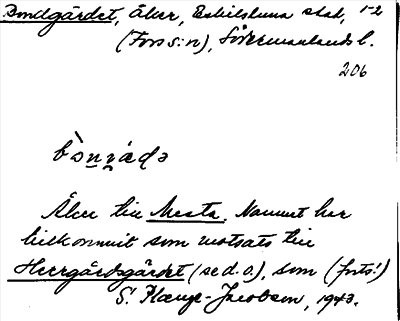 Bondgärdet, åker, Eskilstuna stad, 1-2
(Fors s:n), Södermanlands l.
206
bònjæḍə
Åker till Mesta. Namnet har
tillkommit som motsats till
Herrgårdsgärdet (se d.o.), som (forts!)
S. Plænge-Jacobson, 1940.